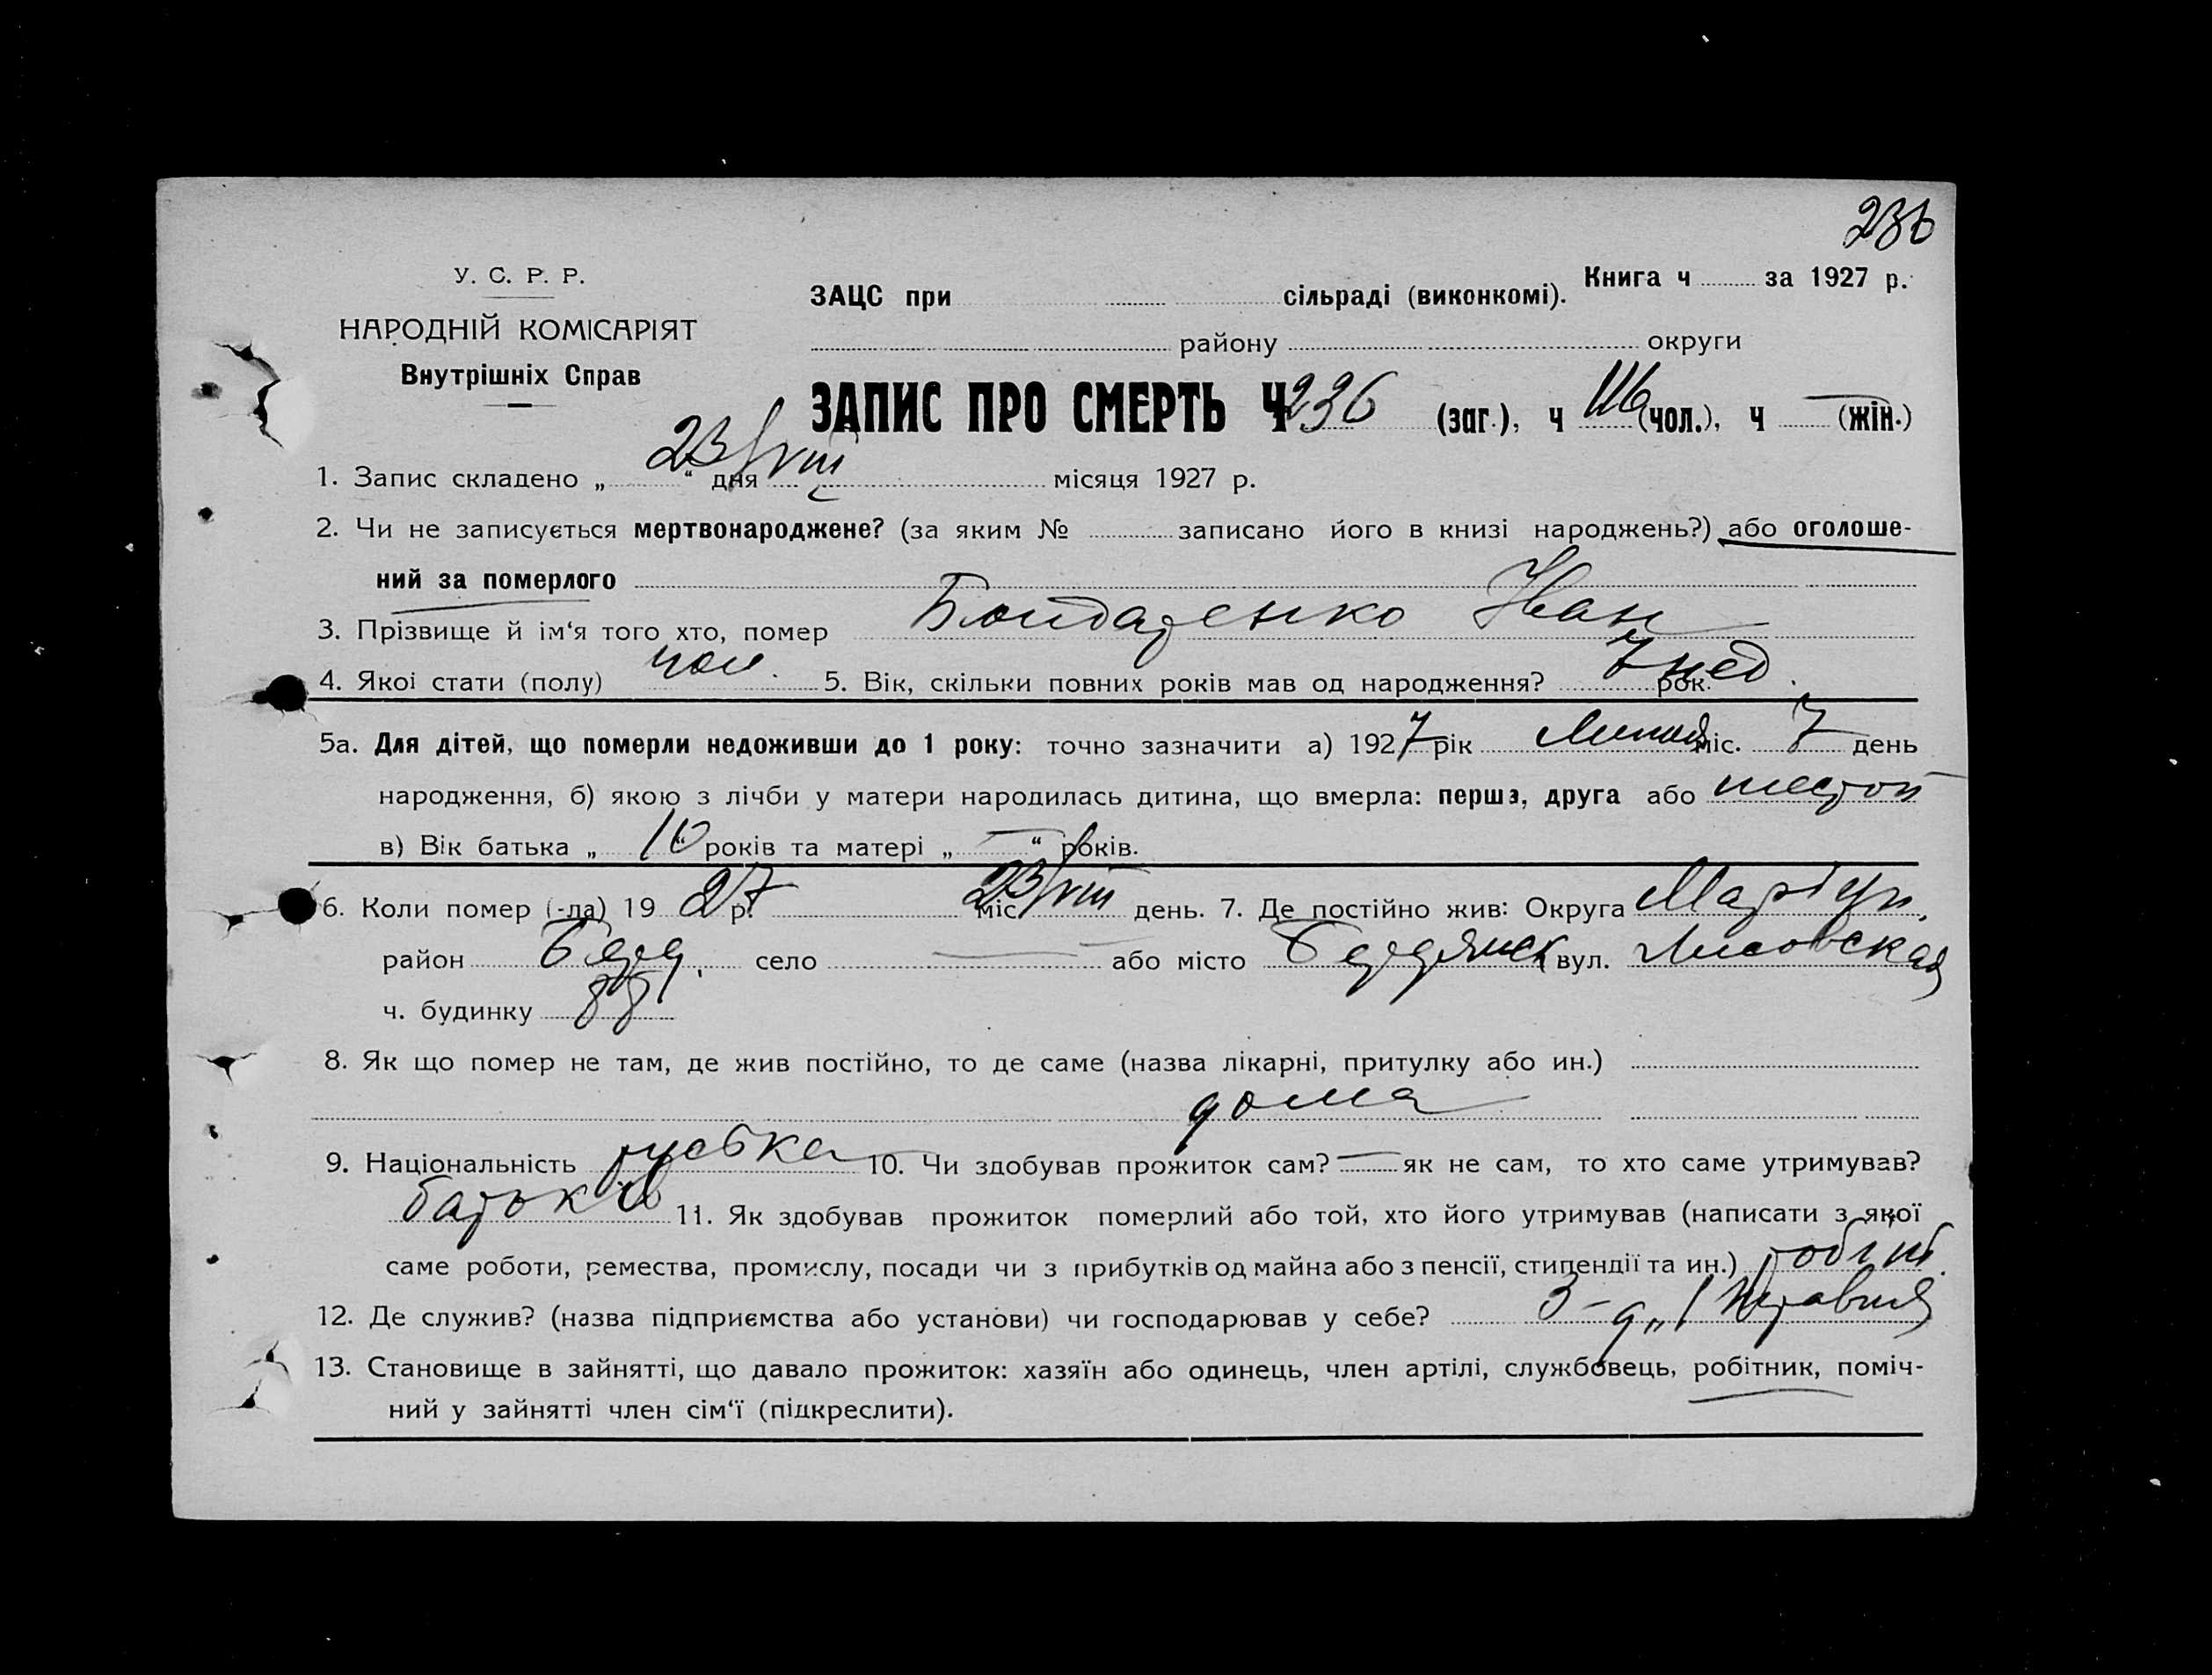 236
У. С. Р. Р.
НАРОДНІЙ КОМІСАРІЯТ
Внутрішніх Справ
ЗАЦС при сільраді (виконкомі). Книга ч за 1927 р.
району округи
ЗАПИС ПРО СМЕРТЬ Ч 236 (заг.), ч 116 (чол.), ч — (жін.)
1. Запис складено „ 23/VIII “ дня місяця 1927 р.
2. Чи не записується мертвонароджене? (за яким № записано його в книзі народжень?) або оголоше-
ний за померлого
3. Прізвище й ім‘я того хто, помер Бондаренко Иван
4. Якої стати (полу) чол. 5. Вік, скільки повних років мав од народження? 7 нед. рок.
5а. Для дітей, що померли недоживши до 1 року: точно зазначити а) 1927 рік міс. 7 день
народження, б) якою з лічби у матери народилась дитина, що вмерла: перша, друга або
в) Вік батька „ “ років та матері „ — “ років.
6. Коли помер (-ла) 1927 р. 23/VIII міс. день. 7. Де постійно жив: Округа Маріуп.
район Берд. село — або місто Бердянск вул. Лисовская
ч. будинку 88
8. Як що помер не там, де жив постійно, то де саме (назва лікарні, притулку або ин.)
дома
9. Національність руська 10. Чи здобував прожиток сам? — як не сам, то хто саме утримував?
батьків 11. Як здобував прожиток померлий або той, хто його утримував (написати з якої
саме роботи, ремества, промислу, посади чи з прибутків од майна або з пенсії, стипендії та ин.) робітн.
12. Де служив? (назва підприємства або установи) чи господарював у себе? З-д „1 Травня
13. Становище в зайнятті, що давало прожиток: хазяїн або одинець, член артілі, службовець, робітник, поміч-
ний у зайнятті член сім‘ї (підкреслити).